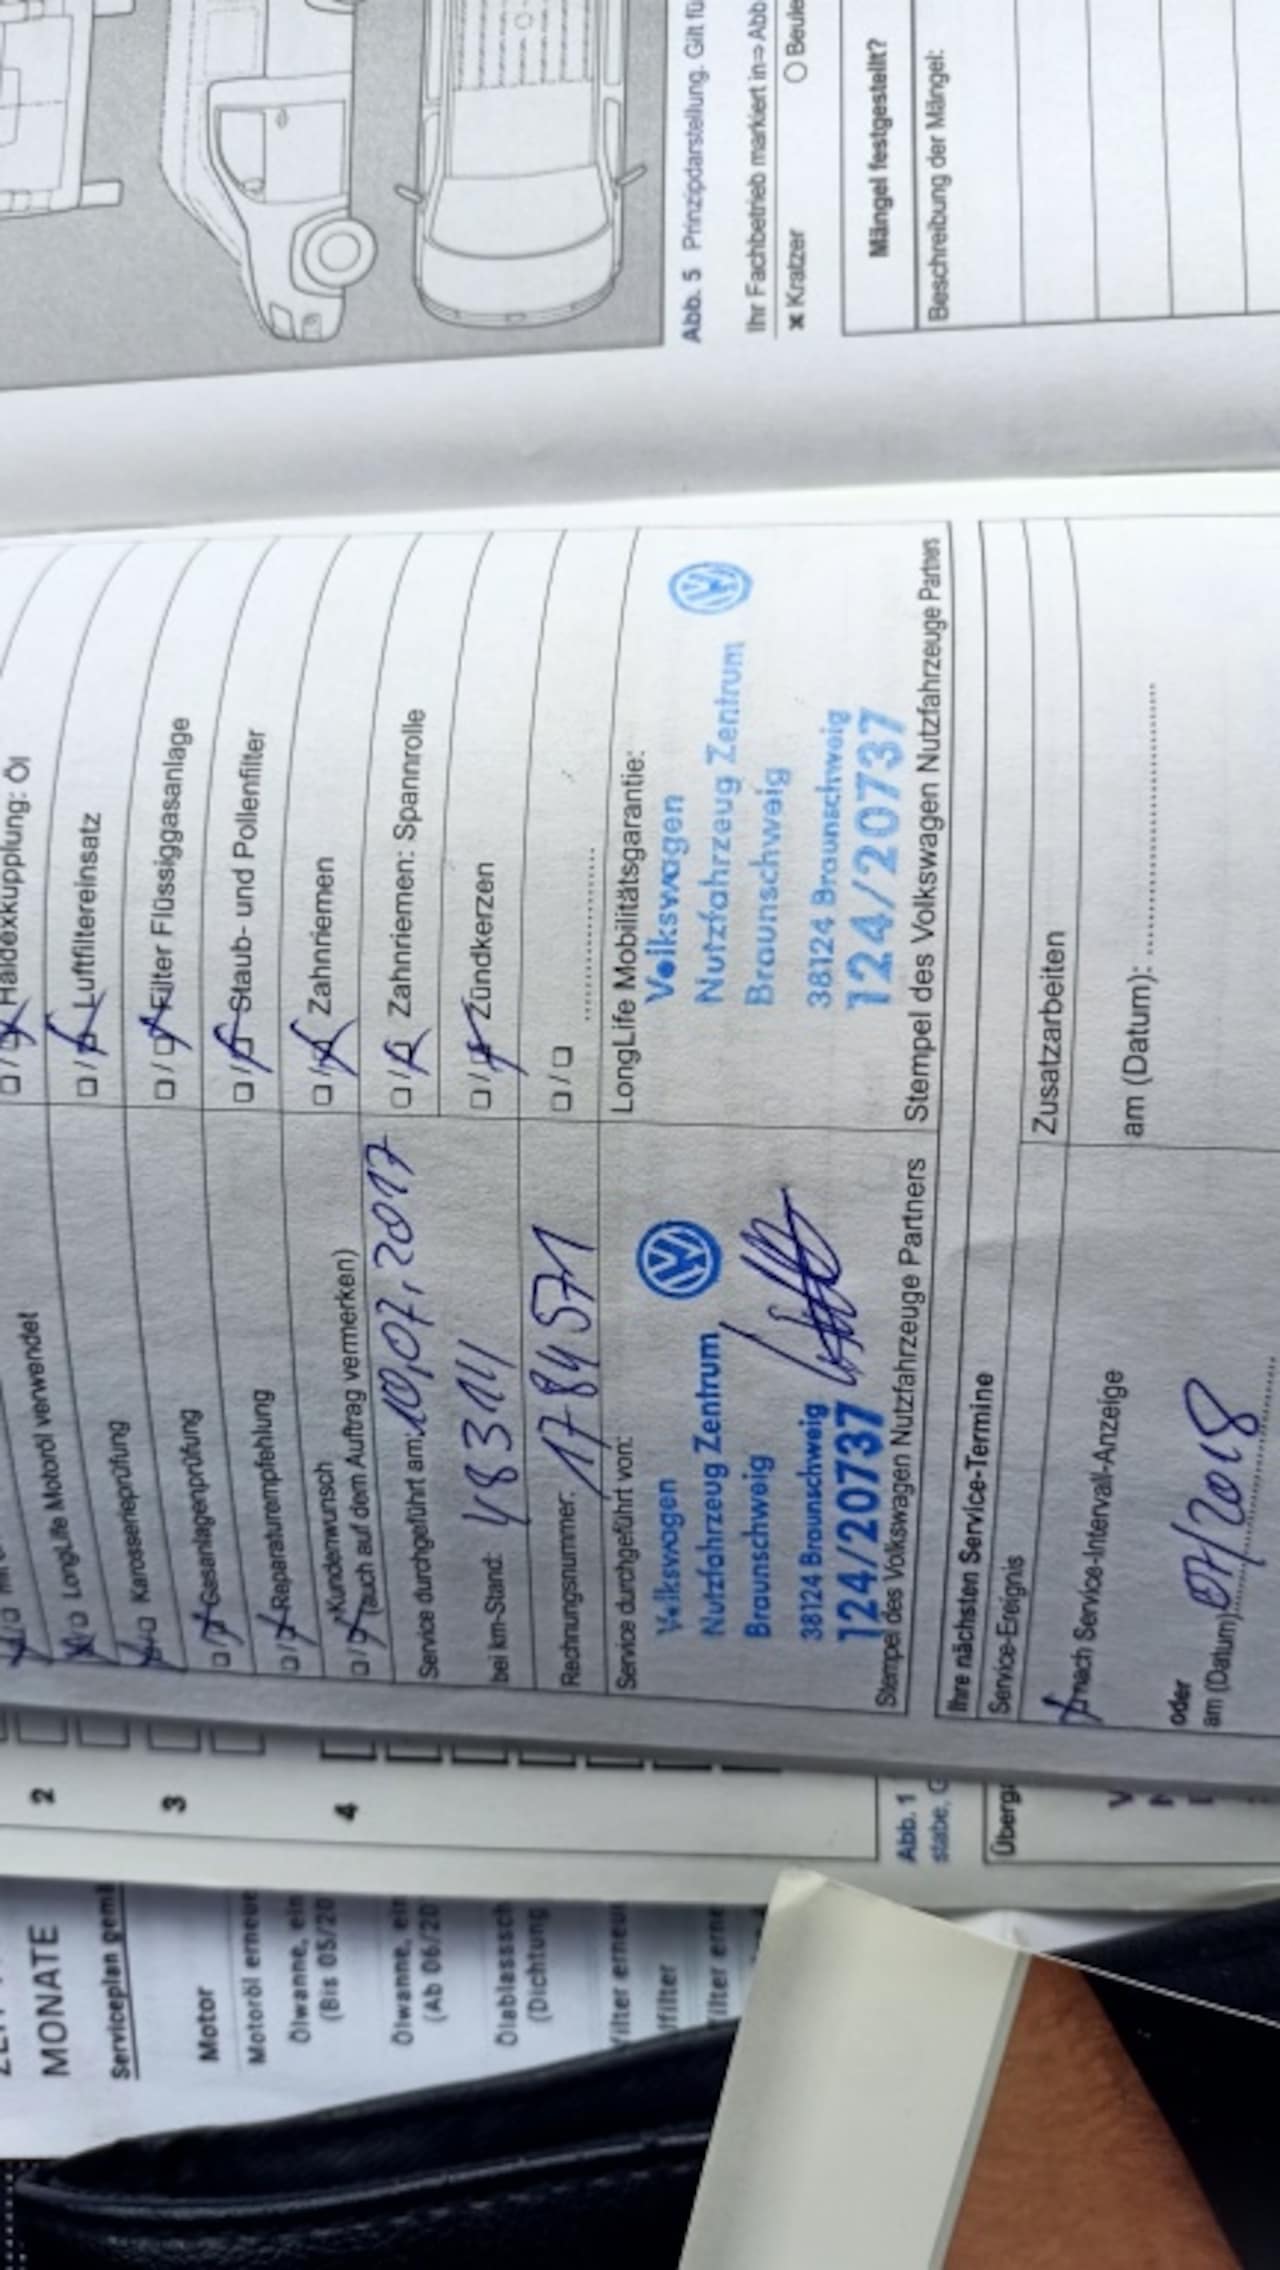 Haldexkupplung: Öl
Luftfiltereinsatz
Filter Flüssiggasanlage
Staub- und Pollenfilter
Zahnriemen
Zahnriemen: Spannrolle
Zündkerzen
LongLife Motoröl verwendet
Karosserieprüfung
Gasanlagenprüfung
Reparaturempfehlung
Kundenwunsch
(auch auf dem Auftrag vermerken)
Service durchgeführt am: 10.07.2017
bei km-Stand: 48311
Rechnungsnummer: 1784571
Service durchgeführt von:
Volkswagen
Nutzfahrzeug Zentrum
Braunschweig
38124 Braunschweig
124/20737
Stempel des Volkswagen Nutzfahrzeuge Partners
LongLife Mobilitätsgarantie:
Volkswagen
Nutzfahrzeug Zentrum
Braunschweig
38124 Braunschweig
124/20737
Stempel des Volkswagen Nutzfahrzeuge Partners
Ihre nächsten Service-Termine
Service-Ereignis
Zusatzarbeiten
nach Service-Intervall-Anzeige
am (Datum):
oder
am (Datum) 07/2018
Abb. 5 Prinzipdarstellung. Gilt fü
Ihr Fachbetrieb markiert in⇒Abb
x Kratzer O Beule
Mängel festgestellt?
Beschreibung der Mängel:
2
3
4
Abb. 1
stabe, G
Überga
MONATE
Serviceplan gemä
Motor
Motoröl erneue
Ölwanne, ein
(Bis 05/20
Ölwanne, ein
(Ab 06/20
Ölablasssch
(Dichtung
filter erneu
lffilter
filter erne